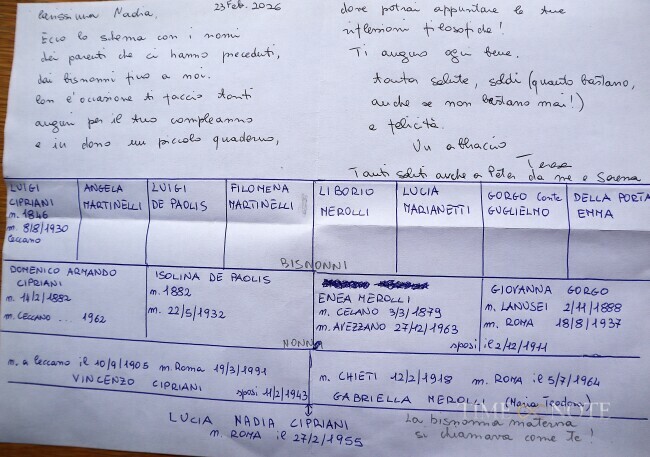 Carissima Nadia, 23 Feb. 2026
Ecco lo schema con i nomi
dei parenti che ci hanno preceduti,
dai bisnonni fino a noi.
Con l'occasione ti faccio tanti
auguri per il tuo compleanno
e in dono un piccolo quaderno,
dove potrai appuntare le tue
riflessioni filosofiche!
Ti auguro ogni bene.
tanta salute, soldi (quanto bastano,
anche se non bastano mai!)
e felicità.
Un abbraccio
Teresa
Tanti saluti anche a Peter da me e Serena
LUIGI
CIPRIANI
n. 1846
m. 8/8/1930
Ceccano
ANGELA
MARTINELLI
LUIGI
DE PAOLIS
FILOMENA
MARTINELLI
LIBORIO
MEROLLI
LUCIA
MARIANETTI
GORGO conte
GUGLIELMO
DELLA PORTA
EMMA
BISNONNI
DOMENICO ARMANDO
CIPRIANI
n. 14/2/1882
m. CECCANO ... 1962
ISOLINA DE PAOLIS
n. 1882
m. 22/5/1932
ENEA MEROLLI
n. CELANO 3/3/1879
m. AVEZZANO 27/12/1963
GIOVANNA GORGO
n. LANUSEI 2/11/1888
m. ROMA 18/8/1937
sposi il 2/12/1911
NONNI
n. a Ceccano il 10/9/1905 m. Roma 19/3/1991
VINCENZO CIPRIANI sposi 11/2/1943
n. CHIETI 12/2/1918 m. ROMA il 5/7/1964
GABRIELLA MEROLLI (Maria Teodora)
LUCIA NADIA CIPRIANI
n. ROMA il 27/2/1955
La bisnonna materna
si chiamava come te!